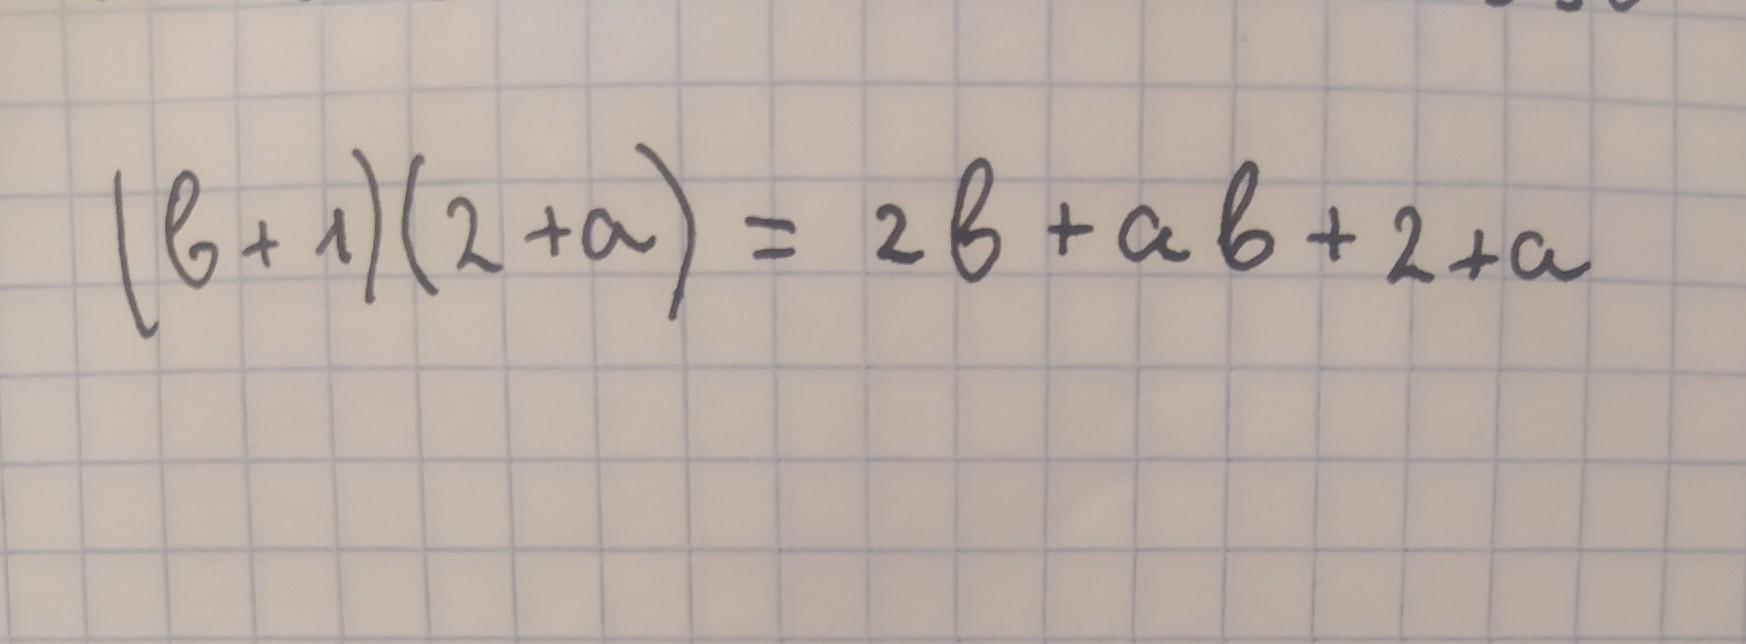 (b+1)(2+a) = 2b + ab + 2+a